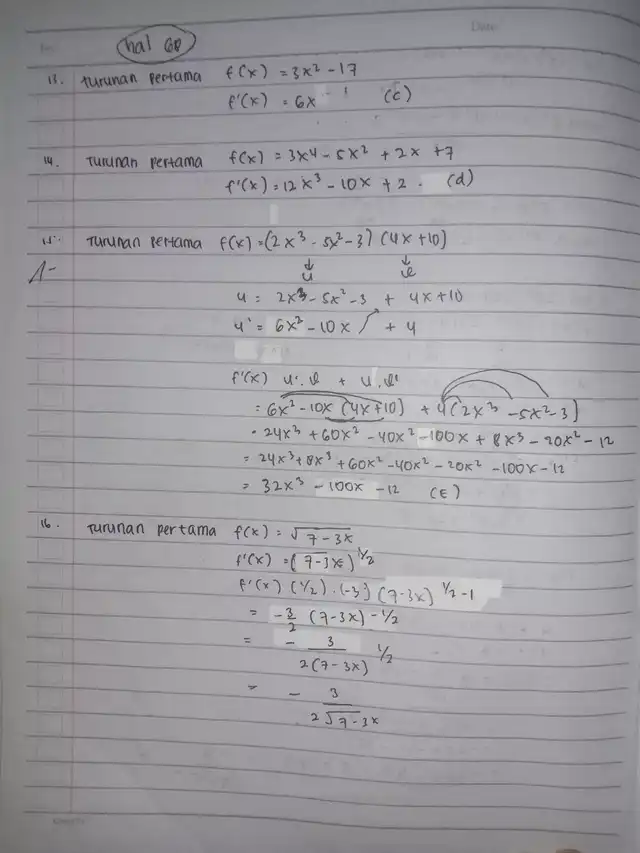 No.
Date
hal 60
13. Turunan pertama f(x) = 3x² - 17
f'(x) = 6x (c)
14. Turunan pertama f(x) = 3x4 - 5x² + 2x + 7
f'(x) = 12x³ - 10x + 2. (d)
15. Turunan pertama f(x) = (2x³ - 5x² - 3) (4x + 10)
↓ ↓
u v
u = 2x³ - 5x² - 3 + 4x + 10
u' = 6x² - 10x + 4
f'(x) u'.v + u.v'
= 6x² - 10x (4x + 10) + 4(2x³ - 5x² - 3)
= 24x³ + 60x² - 40x² - 100x + 8x³ - 20x² - 12
= 24x³ + 8x³ + 60x² - 40x² - 20x² - 100x - 12
= 32x³ - 100x - 12 (E)
16. Turunan pertama f(x) = √7 - 3x
f'(x) = (7 - 3x)^1/2
f'(x) (1/2) . (-3) (7 - 3x)^1/2 - 1
= -3/2 (7 - 3x) - 1/2
= - 3/2(7 - 3x) 1/2
= - 3/2√7 - 3x